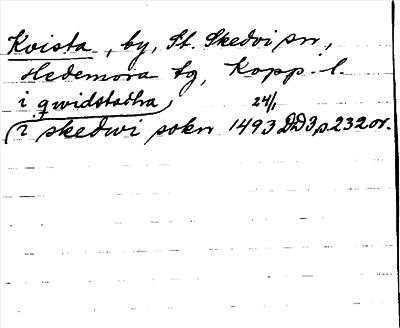 Kvista, by, St. Skedvi sn,
Hedemora tg, Kopp. l.
i qwidstadha 24/1
(i skedwi sokn 1493 DD3, s. 232 or.